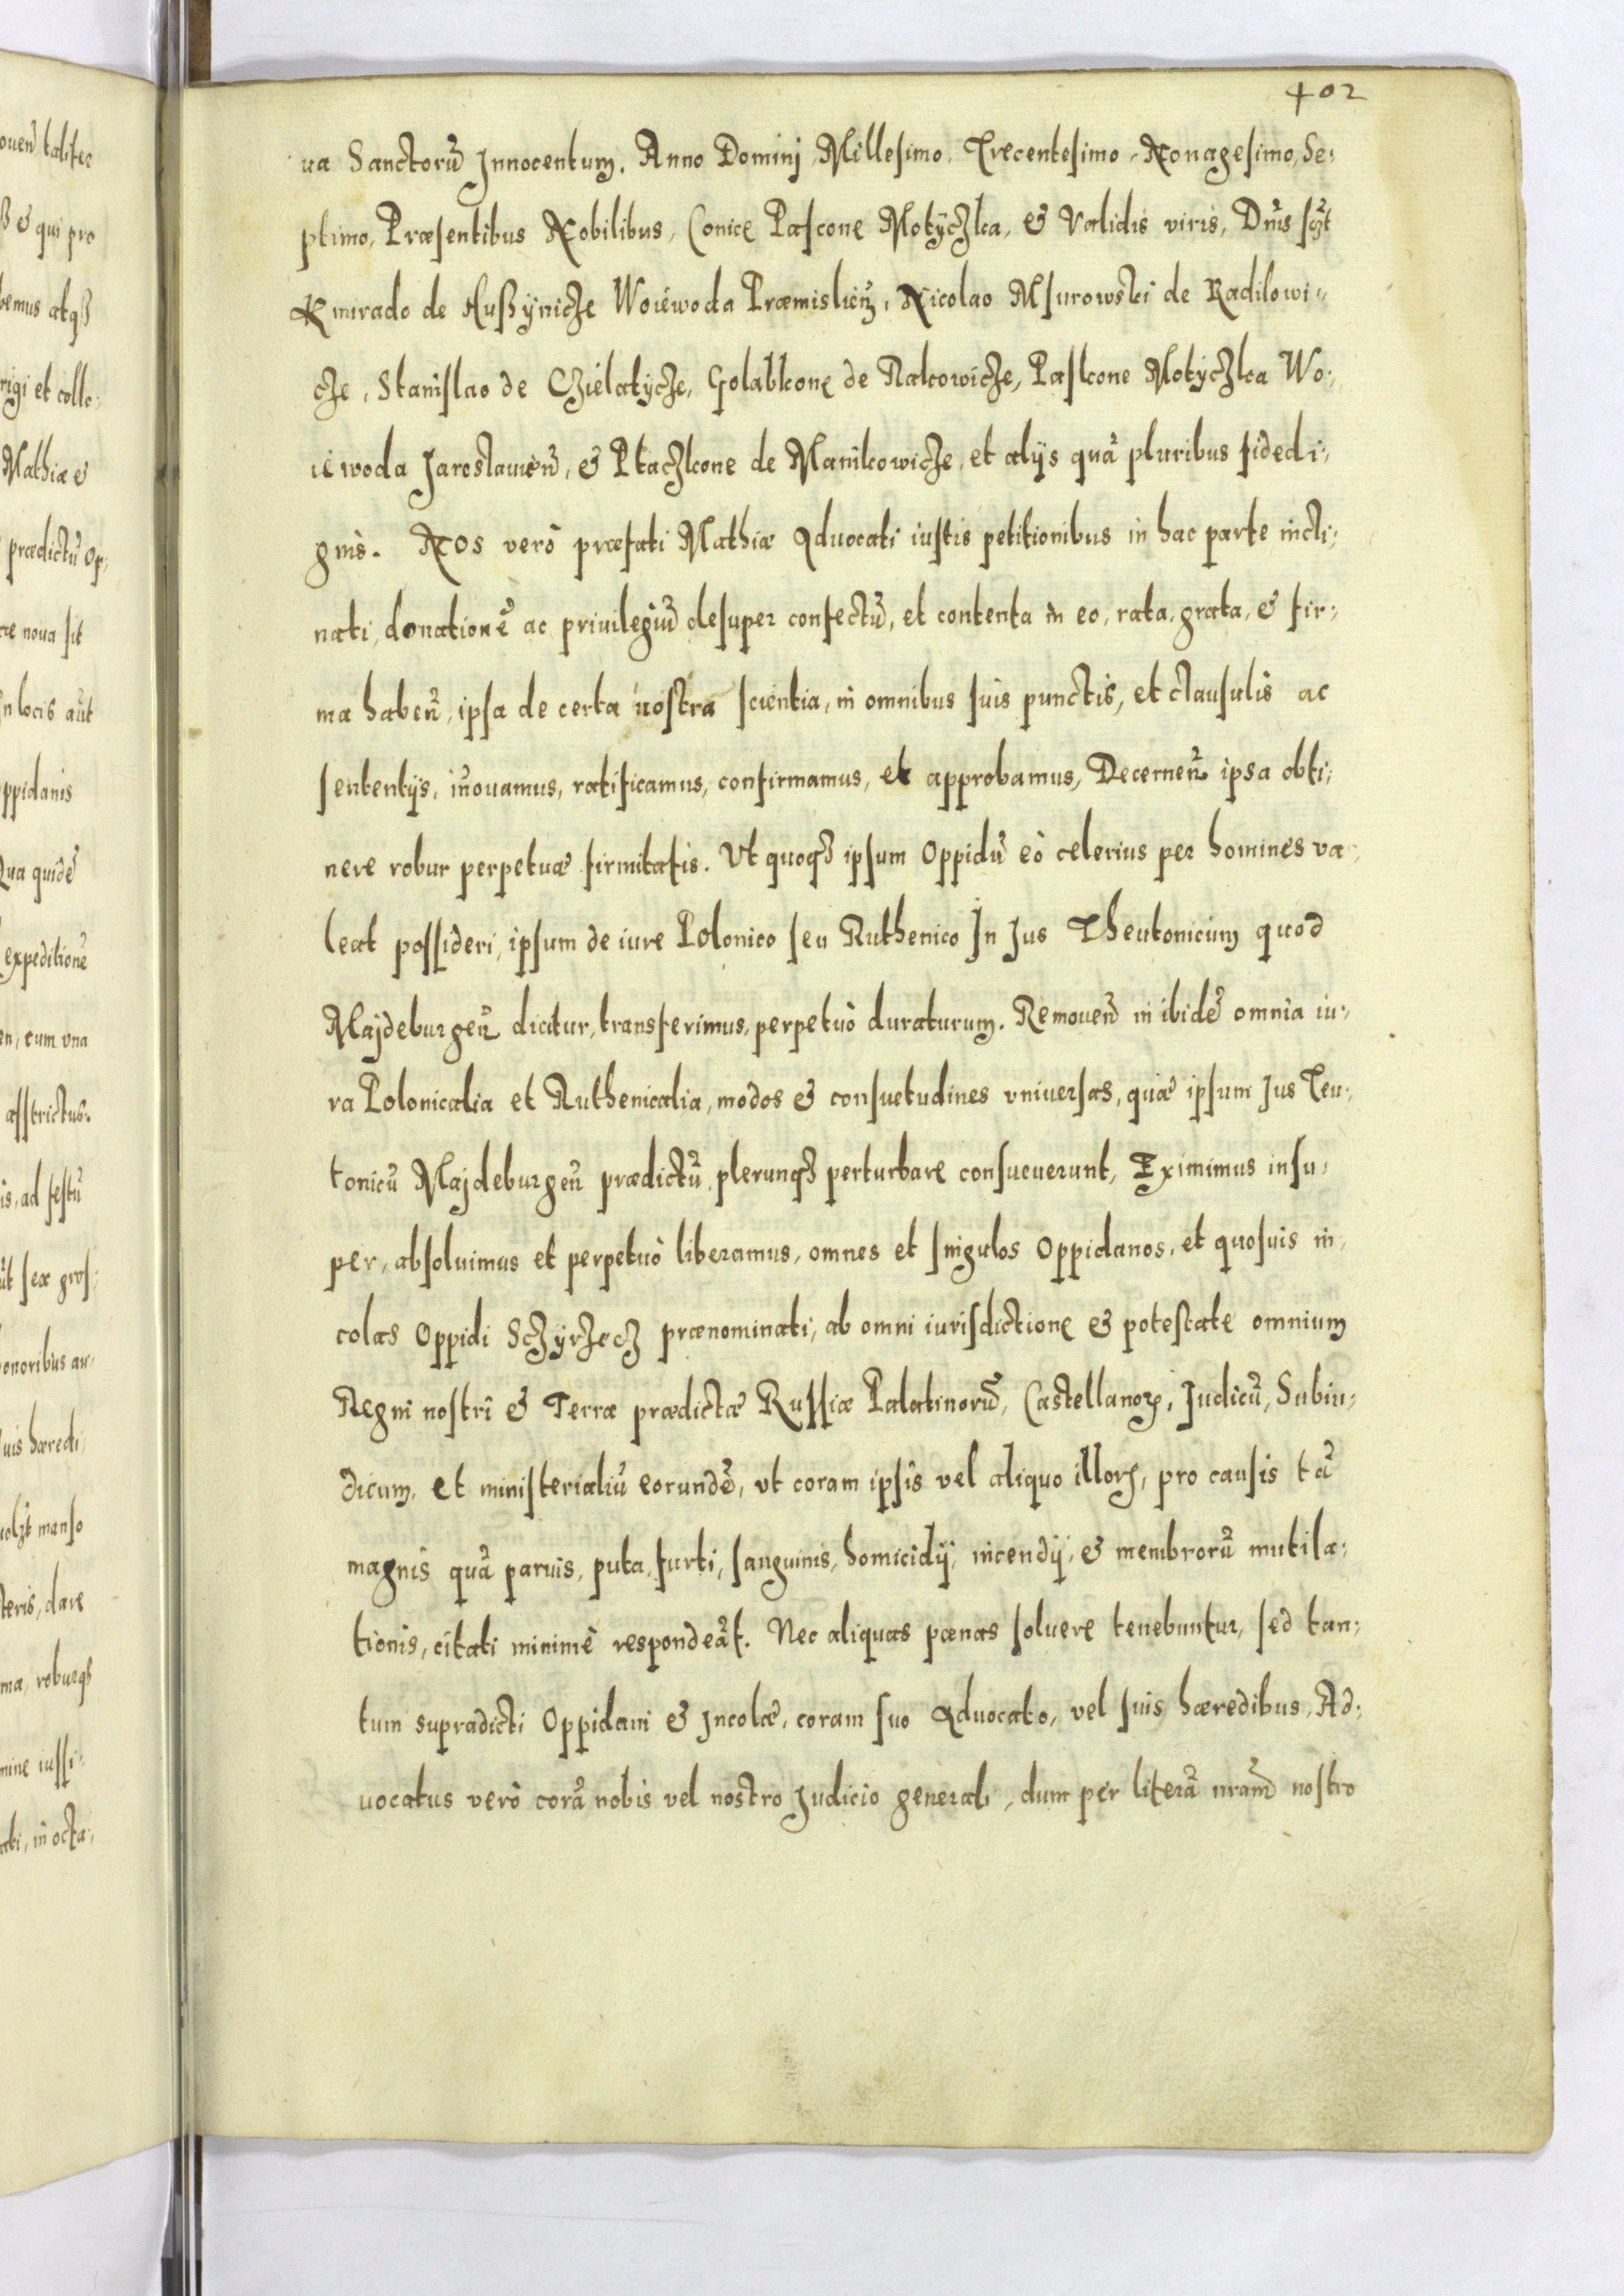 402
ua Sanctorū Innocentum. Anno Dominj Millesimo, Trecentesimo, Nonagesimo, Se:
ptimo, Præsentibus Nobilibus, Conice Pascone Motyczka, & Validis viris, Dn̄is sc̃zt
Kmirado de Hußynicze Woiewoda Præmislień, Nicolao Msurowski de Radilowi:
cze, Stanislao de Czielatycze, Golabkone de Rakowicze, Paskone Motyczka Wo:
iewoda Jaroslauień, & Ptaczkone de Manikowicze, et alijs quā pluribus fidedi:
gnis. Nos verò præfati Mathiæ Aduocati iustis petitionibus in hac parte incli:
nati, donationē ac priuilegiū desuper confectū, et contenta in eo, rata, grata, & fir:
ma habeñ, ipsa de certa nostra scientia, in omnibus suis punctis, et clausulis ac
sententijs, iñouamus, ratificamus, confirmamus, et approbamus, Decerneñ ipsa obti:
nere robur perpetuæ firmitatis. Vt quoqȝ ipsum Oppidū eò celerius per homines va:
leat possideri, ipsum de iure Polonico seu Ruthenico In Jus Theutonicum quod
Majdeburgeñ dicitur, transferimus, perpetuò duraturum. Remoueñ in ibidē omnia iu:
ra Polonicalia et Ruthenicalia, modos & consuetudines vniuersas, quæ ipsum Jus Teu:
tonicū Majdeburgeñ prædictū, plerunqȝ perturbare consueuerunt, Eximimus insu:
per, absoluimus et perpetuò liberamus, omnes et singulos Oppidanos, et quosuis in:
colas Oppidi Sczyrzecz prænominati, ab omni iurisdictione & potestate omnium
Regni nostri & Terræ prædictæ Russiæ Palatinorū, Castellanoꝝ, Judicū, Subiu:
dicum, et ministerialiū eorundē, vt coram ipsis vel aliquo illoꝝ, pro causis tā
magnis quā paruis, puta, furti, sanguinis, homicidij, incendij, & membrorū mutila:
tionis, citati minimè respondeāt. Nec aliquas pænas soluere tenebuntur, sed tan:
tum supradicti Oppidani & Jncolæ, coram suo Aduocato, vel suis hæredibus, Ad:
uocatus verò corā nobis vel nostro Judicio generali, dum per literā nr̄am nostro